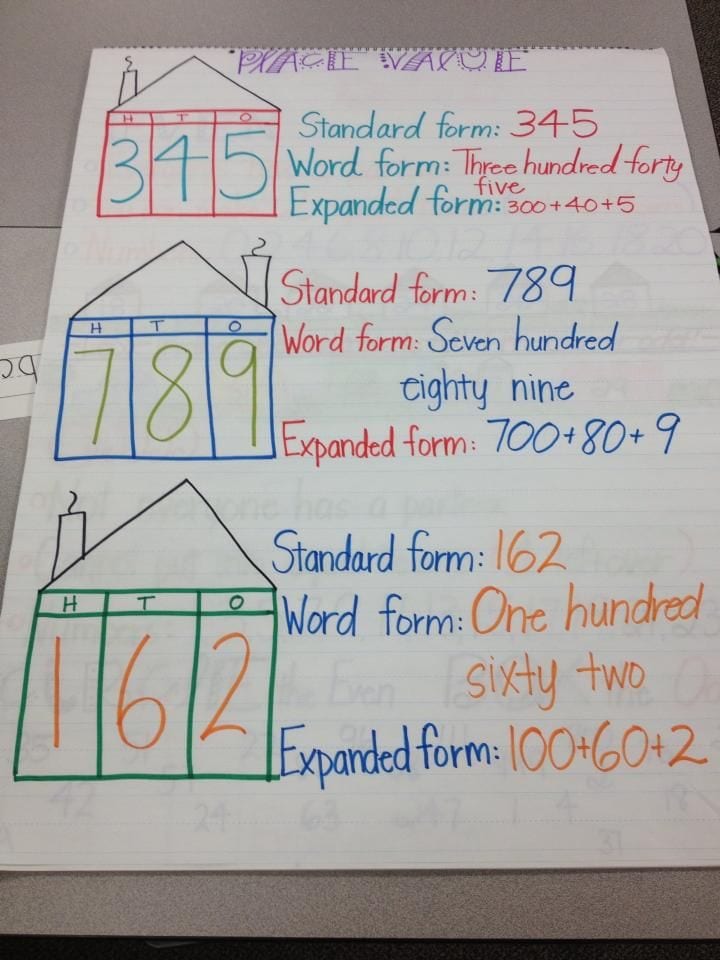 PLACE VALUE
H T O
3 4 5
Standard form: 345
Word form: Three hundred forty
five
Expanded form: 300+40+5
H T O
7 8 9
Standard form: 789
Word form: Seven hundred
eighty nine
Expanded form: 700+80+9
H T O
1 6 2
Standard form: 162
Word form: One hundred
sixty two
Expanded form: 100+60+2